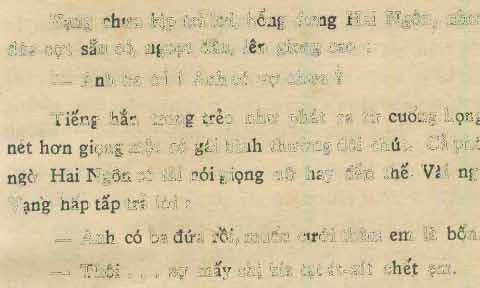 Vạng chưa kịp trả lời, bỗng dưng Hai Ngôn, như
đùa cợt sẵn có, ngoẹo đầu, lên giọng cao :
— Anh ba ơi ! Anh có vợ chưa ?
Tiếng hắn trong trẻo như phát ra từ cuống họng
nét hơn giọng một cô gái bình thường đôi chút. Cả
ngờ Hai Ngôn có tài nói giọng nữ hay đến thế. Vài
Vạng hấp tấp trả lời :
— Anh có ba đứa rồi, muốn cưới thêm em là bốn
— Thôi . . . sợ mấy chị chết em.